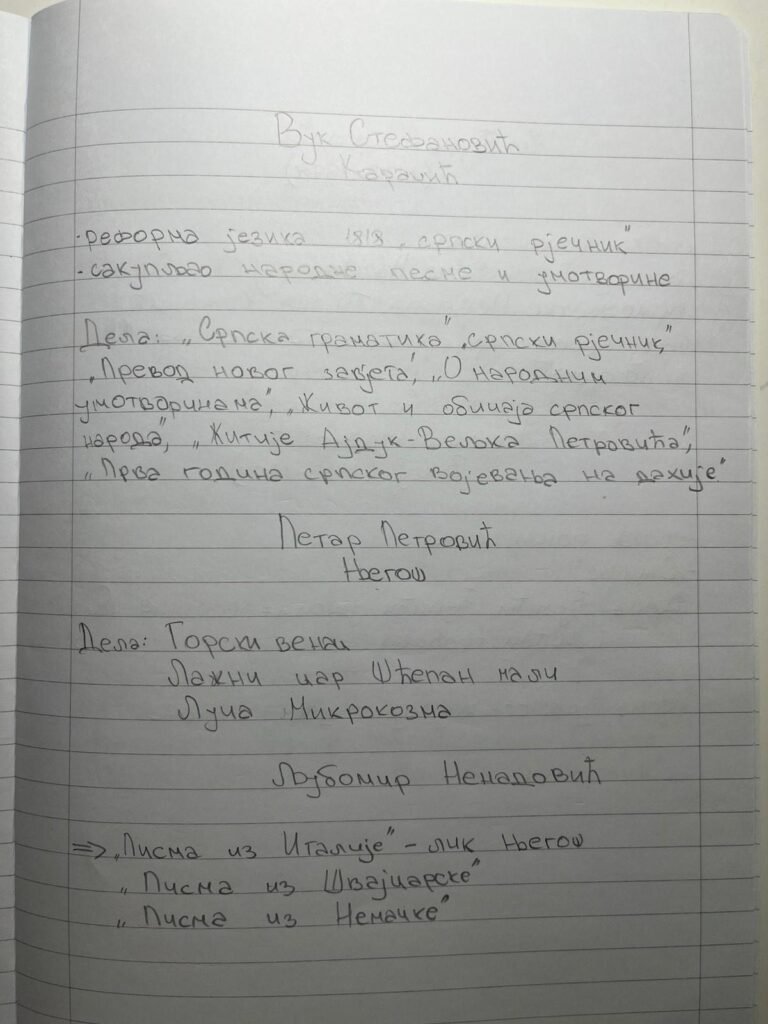 Вук Стефановић
Караџић
· реформа језика 1818 „српски рјечник"
· сакупљао народне песме и умотворине
Дела: „Српска граматика", „српски рјечник",
„Превод новог завјета", „О народним
умотворинама", „Живот и обичаја српског
народа", „Житије Ајдук-Вељка Петровића",
„Прва година српског војевања на дахије"
Петар Петровић
Његош
Дела: Горски венац
Лажни цар Шћепан мали
Луча Микрокозма
Љубомир Ненадовић
⇒ „Писма из Италије" – лик Његош
„Писма из Швајцарске"
„Писма из Немачке"